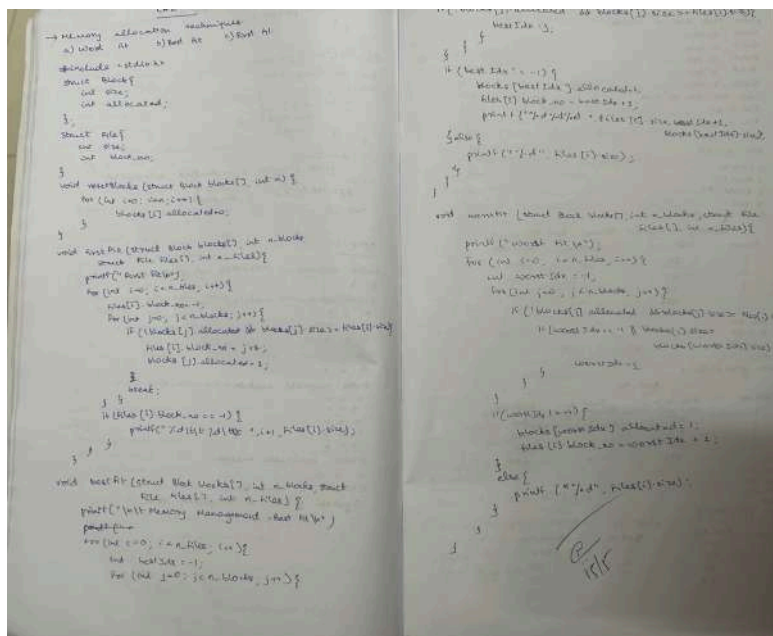 → Memory allocation techniques
a) Worst fit b) Best fit c) First fit
#include <stdio.h>
struct Block{
int size;
int allocated;
};
struct File{
int size;
int block_no;
}
void resetBlocks (struct Block blocks[], int n) {
for (int i=0; i<n; i++) {
blocks [i].allocated=0;
}
}
void firstFit (struct Block blocks[], int n_blocks
struct File files[], int n_files){
printf("First Fit\n");
for (int i=0; i<n_files; i++){
files[i].block_no=-1;
for (int j=0; j<n_blocks; j++){
if (!blocks[j].allocated && blocks[j].size>=files[i].size{
files [i].block_no = j+1;
blocks [j].allocated=1;
break;
} }
if (files [i].block_no == -1) {
files[i].size);
}
} }
void bestfit (struct Block blocks[], int n_blocks, struct
File files[], int n_files) {
printf("\n\t Memory Management -Best fit\n")
for (int i=0; i<n_files; i++){
int bestIdx = -1;
for (int j=0; j<n_blocks, j++){
allocated && blocks[j].size>=files[i].size){
bestIdx = j;
}
} }
if (bestIdx != -1) {
blocks [bestIdx].allocated=1;
files[i].block_no = bestIdx+1;
files [i].size, bestIdx+1,
blocks[bestIdx].size);
}else {
printf ("%d", files[i].size);
}
} }
void worstfit (struct Block blocks[], int n_blocks, struct File
files[], int n_files){
printf ("Worst fit \n");
for (int i=0; i<n_files, i++){
int worstIdx = -1;
for (int j=0; j<n_blocks, j++){
if (!blocks[j].allocated && blocks[j].size>= files[i]
if (worstIdx == -1 || blocks[j].size>
blocks[worstIdx].size)
worstIdx = j
}
}
if (worstIdx != -1) {
blocks [worstIdx].allocated = 1;
files [i].block_no = worstIdx + 1;
}
else {
printf ("%d", files[i].size);
}
}
}
15/5